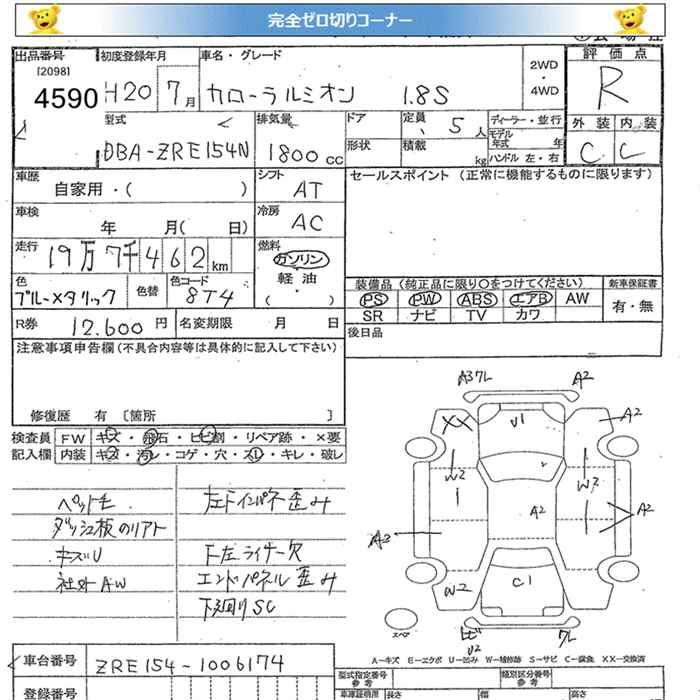 完全ゼロ切りコーナー
出品番号 初度登録年月 車名・グレード 2WD ・ 4WD 評価点
[2098]
4590 H20 7月 カローラルミオン 1.8S R
型式 排気量 ドア 定員 5人 ディーラー・並行 外装 内装
モデル年式 年
DBA-ZRE154N 1800cc 形状 積載 kg ハンドル 左・右 C C
車歴 シフト セールスポイント (正常に機能するものに限ります)
自家用・( ) AT
車検 冷房
年 月( ) AC
走行 燃料
19万7千462km ガソリン
軽油
( ・ )
色 色替 色コード 装備品 (純正品に限り○をつけてください) 新車保証書
ブルーメタリック 8T4 PS PW ABS エアB AW 有・無
SR ナビ TV カワ
R券 12.600円 名変期限 月 日 後日品
注意事項申告欄(不具合内容等は具体的に記入して下さい)
修復歴 有 〔箇所 〕
検査員 FW キズ・飛石・ヒビ割・リペア跡・×要
記入欄 内装 キズ・汚レ・コゲ・穴・スレ・キレ・破レ
ペット毛 左下インパネ歪み
ダッシュ板のリアト
キズU 下左ライナー欠
社外AW エンドパネル歪み
下廻りSC
A3ワレ A2
XX U1 A2
W2 W2
A2 A2
A3
W2 C1
スペア ヒビ ワレ
U2
A-キズ E-エクボ U-凹み W-補修跡 S-サビ C-腐食 XX-交換済
車台番号 ZRE154-1006174 型式指定番号 類別区分番号
参考 参考
登録番号 車庫証明用 長さ 幅 高さ